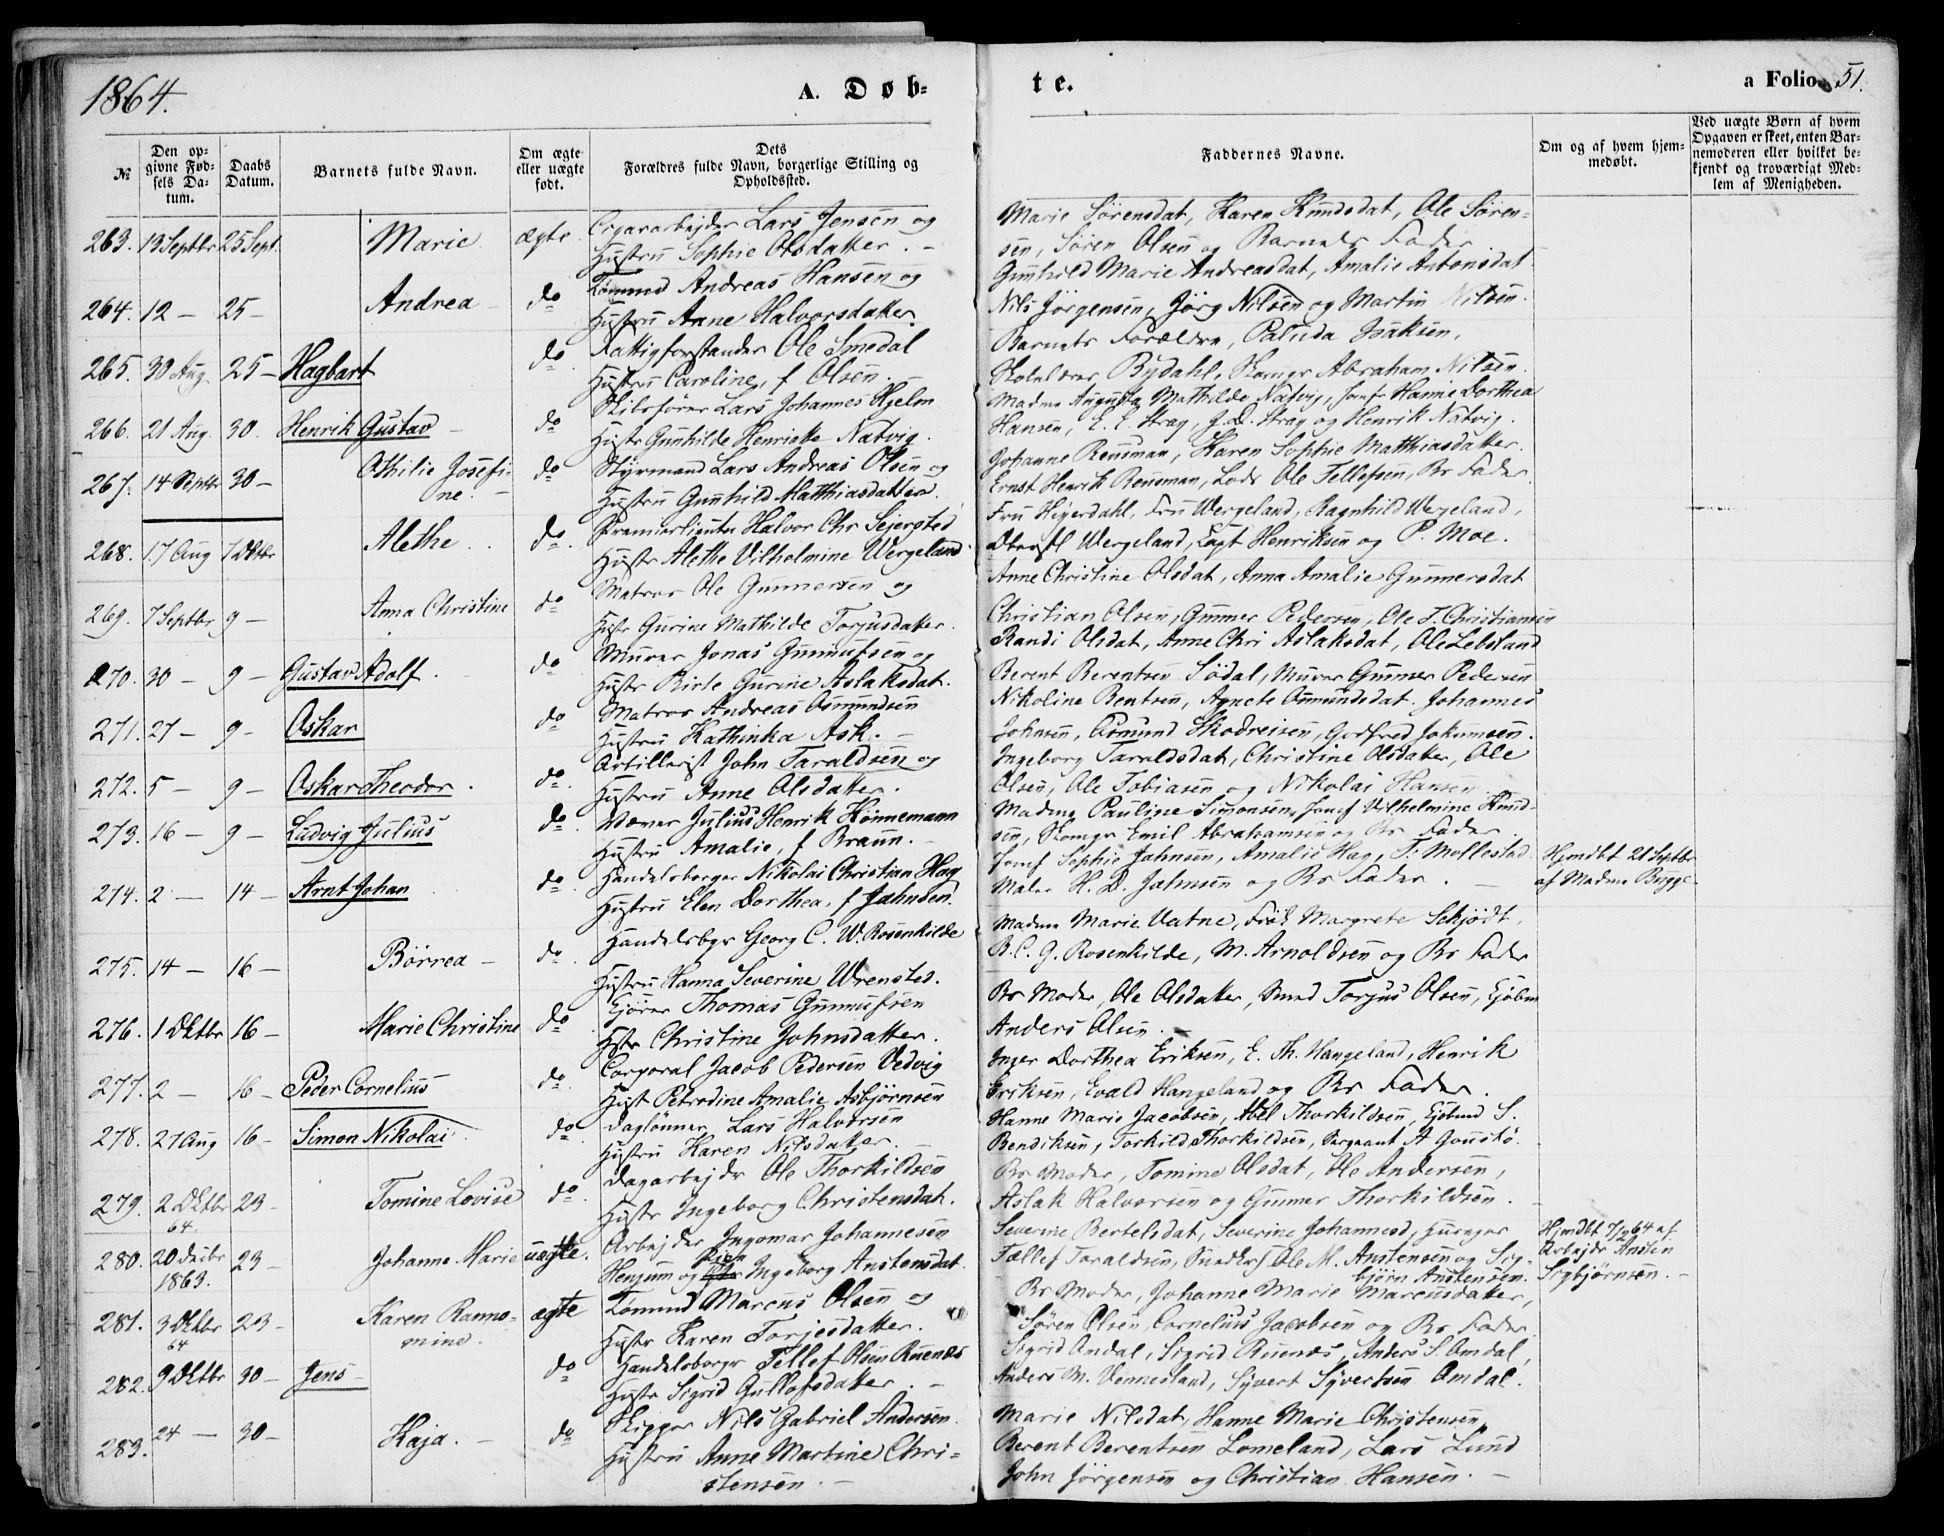 1864.
A. Døb-
te.
a Folio. 51.
№
Den opgivne Fødsels Datum.
Daabs Datum.
Barnets fulde Navn.
Om ægte eller uægte født.
Dets Forældres fulde Navn, borgerlige Stilling og Opholdssted.
Faddernes Navne.
Om og af hvem hjemmedøbt.
Ved uægte Børn af hvem Opgaven er skeet, enten Barnemoderen eller hvilket bekjendt og troværdigt Medlem af Menigheden.
263. 13 Septbr 25 Sept. Marie ægte Cigararbejder Lars Jensen og
Hustru Sophie Olsdatter. -
Marie Sørensdat, Karen Knudsdat, Ole Søren-
sen, Søren Olsen og Barnets Fader
264. 12 - 25 - Andrea do Tømmd Andreas Hansen og
Hustru Anne Halvorsdatter.
Gunhild Marie Andreasdat, Amalie Antonsdat
Nils Jörgensen, Jörg Nilsen og Martin Nilsen.
265. 30 Aug. 25 - Hagbart do Fattigforstander Ole Smedal
Hustru Caroline, f Olsen. -
Barnets Forældre, Paluda Isaksen,
Skolelærer Rydahl, Skomgr Abraham Nilsen.
266. 21 Aug. 30. Henrik Gustav - do Skibsfører Lars Johannes Hjelm
Hustr Gunhilde Henriette Natvig.
Madme Augusta Mathilde Natvig, Jomfr Hanne Dorthea
Hansen, E. E. Stray, J. D. Stray og Henrik Natvig.
267. 14 Septbr 30 - Othilie Josefi-
ne. - do Styrmand Lars Andreas Olsen og
Hustru Gunhild Matthiasdatter.
Johanne Reusman, Karen Sophie Matthiasdatter.
Ernst Henrik Reusman, Lods Ole Tellefsen, Br Fader.
268. 17 Aug 7 Oktbr Alethe. do Premierlieutn Halvor Chr Sejersted
Hustr Alethe Vilhelmine Wergeland.
Fru Heyerdahl, Fru Wergeland, Ragnhild Wergeland,
Oberstl Wergeland, Capt Henriksen og P. Moe.
269. 7 Septbr 9 - Anna Christine do Matros Ole Gunnersen og
Hustr Gurine Mathilde Torjusdatter.
Anne Christine Olsdat, Anna Amalie Gunnersdat
Christian Olsen, Gunner Pedersen, Ole T. Christiansen
270. 30 - 9 - Gustav Adolf. do Murer Jonas Gunnufsen og
Hustr Birte Gurine Aslaksdat.
Randi Olsdat, Anne Chri Aslaksdat, Ole Lebsland
Berent Berentsen Södal, Murer Gunner Pedersen
271. 27 - 9 - Oskar do Matros Andreas Osmundsen
Hustru Kathinka Ask. -
Nikoline Bentsen, Agnete Osmundsdat. Johannes
Johnsen, Osmund Skadreisen, Godfred Jokumsen.
272. 5 - 9 - Oskar Theodor. do Artillerist John Taraldsen og
Hustru Anne Olsdatter.
Ingeborg Taraldsdat, Christine Olsdatter, Ole
Olsen, Ole Tobiasen og Nikolai Hansen
273. 16 - 9 - Ludvig Julius do Væver Julius Henrik Hönnemann
Hustru Amalie, f Braun. -
Madme Pauline Simonsen, Jomf Vilhelmine Knud-
sen, Skomgr Emil Abrahamsen og Br Fader.
274. 2 - 14 - Arnt Johan do Handelsborger Nikolai Christian Hag
Hustru Elen Dorthea, f Jahnsen.
Jomf Sophie Jahnsen, Amalie Hag, T. Mollestad
Maler H. D. Jahnsen og Br Fader. -
Hjmdbt 21 Septbr
af Madme Bugge.
275. 14 - 16 - Börrea - do Handelsbgr Georg C. W. Rosenkilde
Hustru Hanna Severine Wrensted.
Madme Marie Vatne, Frök Margrete Schjødt,
B. C. G. Rosenkilde, M. Arnoldsen og Br Fader
276. 1 Oktbr 16 - Marie Christine do Gjörer Thomas Gunnufsen
Hstr Christine Johnsdatter.
Br Moder, Ole Olsdatter, Smed Torjus Olsen,
Anders Olsen.
277. 2 - 16 - Peder Cornelius do Corporal Jacob Pedersen Vedvig
Hust Petrodine Amalie Asbjørnsen
Inger Dorthea Eriksen, E. Th. Hangeland, Henrik
Eriksen, Evald Hangeland og Br Fader.
278. 27 Aug 16 - Simon Nikolai. do Daglønner Lars Halvorsen
Hustru Karen Nilsdatter -
Hanne Marie Jacobsen, Abel Thorkildsen, S.
Bendiksen, Torkild Thorkildsen, Sergeant A
279. 2 Oktbr
64. 23 - Tomine Lovise do Dagarbejdr Ole Thorkildsen
Hustr Ingeborg Christensdat.
Br Moder, Tomine Olsdat, Ole Andersen,
Aslak Halvorsen og Gunner Thorkildsen.
280. 20 Decbr
1863. 23 - Johanne Marie uægte. Arbejder Ingomar Johannesen
Henjum og Pige Ingeborg Anstensdat.
Severine Bertelsdat, Severine Johannesd,
Tellef Taraldsen, Ole M. Anstensen og Sig-
björn Anstensen.
Hjmdbt 7/2 64 af
Arbejdr Ansten
Sigbjørnsen. -
281. 3 Oktbr
64 23 - Karen Ranno-
mine. ægte Tømmd Marcus Olsen og
Hustr Karen Torjesdatter.
Br Moder, Johanne Marie Marcusdatter,
Søren Olsen, Cornelius Jacobsen og Br Fader
282. 9 Oktbr 30 - Jens - do Handelsborgr Tellef Olsen Ruenæs
Hustr Sigrid Gullofsdatter. -
Sigrid Omdal, Sigrid Ruenæs, Anders S. Omdal,
Anders M. Vennesland, Syvert Syvertsen Omdal.
283. 24 - 30 - Kaja. - do Skipper Nils Gabriel Andersen
Hustru Anne Martine Chri-
stensen. -
Marie Nilsdat, Hanne Marie Christensen
Berent Berentsen Lomeland, Lars Lund
John Jörgensen og Christian Hansen. -